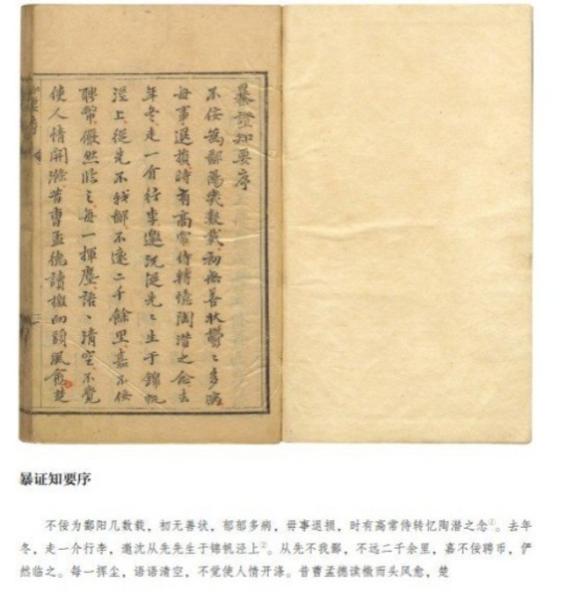 暴證知要序
不佞為鄱陽幾數載初無善狀鬱〻多病
毎事退損時有高常侍轉憶陶潛之念去
年冬走一介行李邀沈從先〻生于錦帆
涇上從先不我鄙不遠二千餘里嘉不佞
聘幣儼然臨之每一揮麈語〻清空不覺
使人情開滌昔曹孟德讀檄而頭風愈楚
暴证知要序
不佞为鄱阳几数载，初无善状，郁郁多病，毋事退损，时有高常侍转忆陶潜之念①。去年
冬，走一介行李，邀沈从先先生于锦帆泾上②。从先不我鄙，不远二千余里，嘉不佞聘币，俨
然临之。每一挥尘，语语清空，不觉使人情开涤。昔曹孟德读檄而头风愈，楚